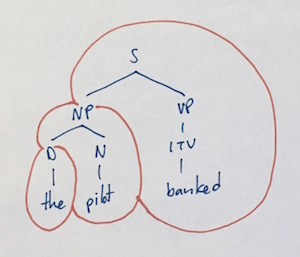 S
NP VP
D N ITV
the pilot banked